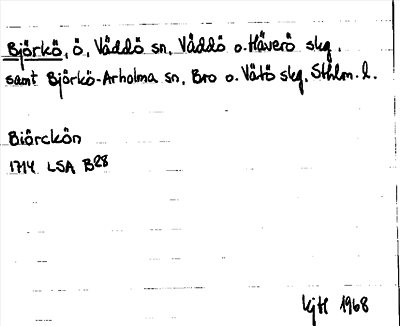 Björkö, ö, Väddö sn, Väddö o. Häverö skg,
samt Björkö-Arholma sn, Bro o. Vätö skg, Sthlm. l.
Biörckön
1714 LSA B28
KjH 1968